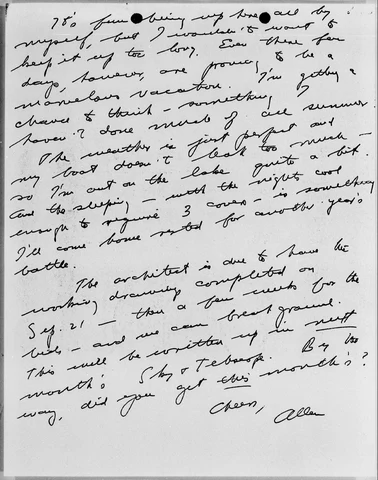 It's fun being up here all by
myself, but I wouldn't want to
keep it up too long. Even these few
days, however, are proving to be a
marvelous vacation. I'm getting a
chance to think — something I
haven't done much of all summer.
The weather is just perfect and
my boat doesn't leak too much —
so I'm out on the lake quite a bit.
And the sleeping — with the nights cool
enough to require 3 covers — is something.
I'll come home rested for another year's
battle.
The architect is due to have the
working drawings completed on
Sep. 21 — then a few weeks for the
bids — and we can break ground.
This will be written up in next
month's Sky & Telescope. By the
way, did you get this month's?
Cheers,
Allen